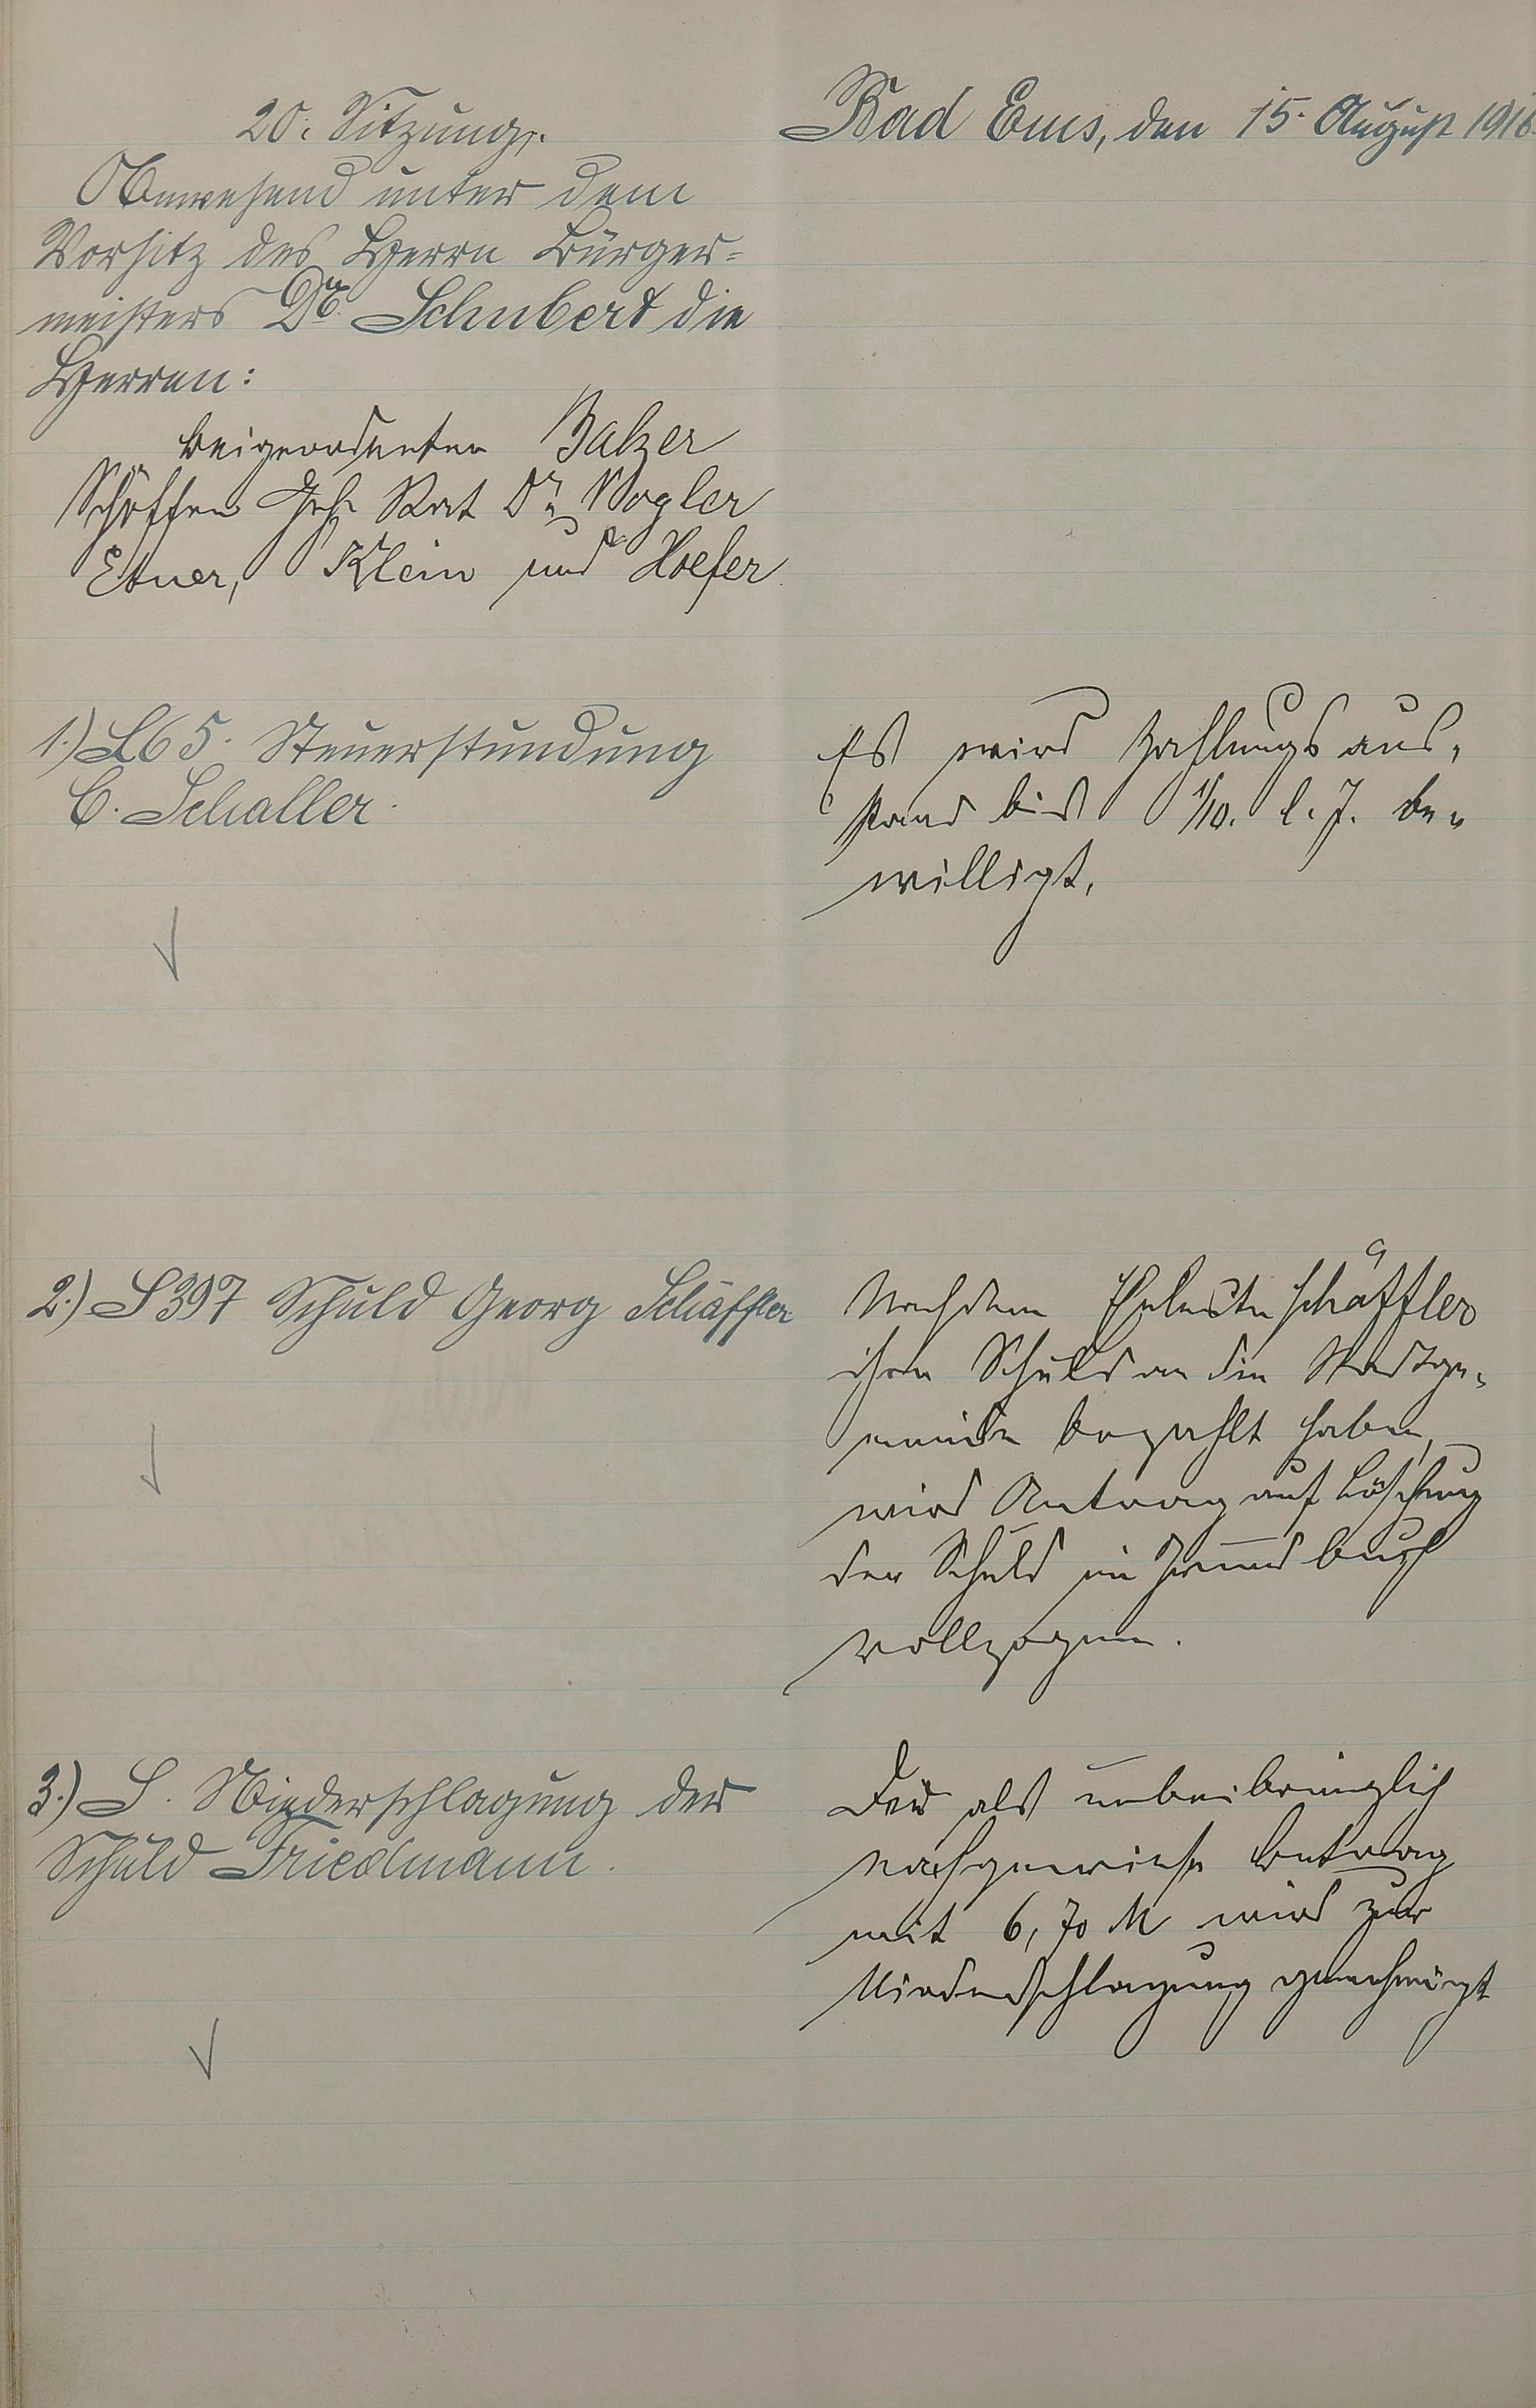 20. Sitzung.
Bad Ems, den 15. August 1916
Anwesend unter dem
Vorsitz des Herrn Bürger=
meisters Dr. Schubert die
Herren:
Beigeordneter Balzer
Schöffen Geh. Rat Dr. Vogler
Ebner, Klein und Hoefer
1.) L 65. Steuerstundung
C. Schaller.
Es wird Zahlungsaus-
stand bis 1/10. l. J. be-
willigt.
2.) S 397 Schuld Georg Schäffler
Nachdem Eheleute Schäffler
ihre Schuld an die Stadtge-
meinde bezahlt haben,
wird Antrag auf Löschung
der Schuld im Grundbuch
vollzogen.
3.) S. Niederschlagung der
Schuld Friedmann.
Der als unbeibringlich
nachgewiesene Betrag
mit 6,70 M wird zur
Niederschlagung genehmigt